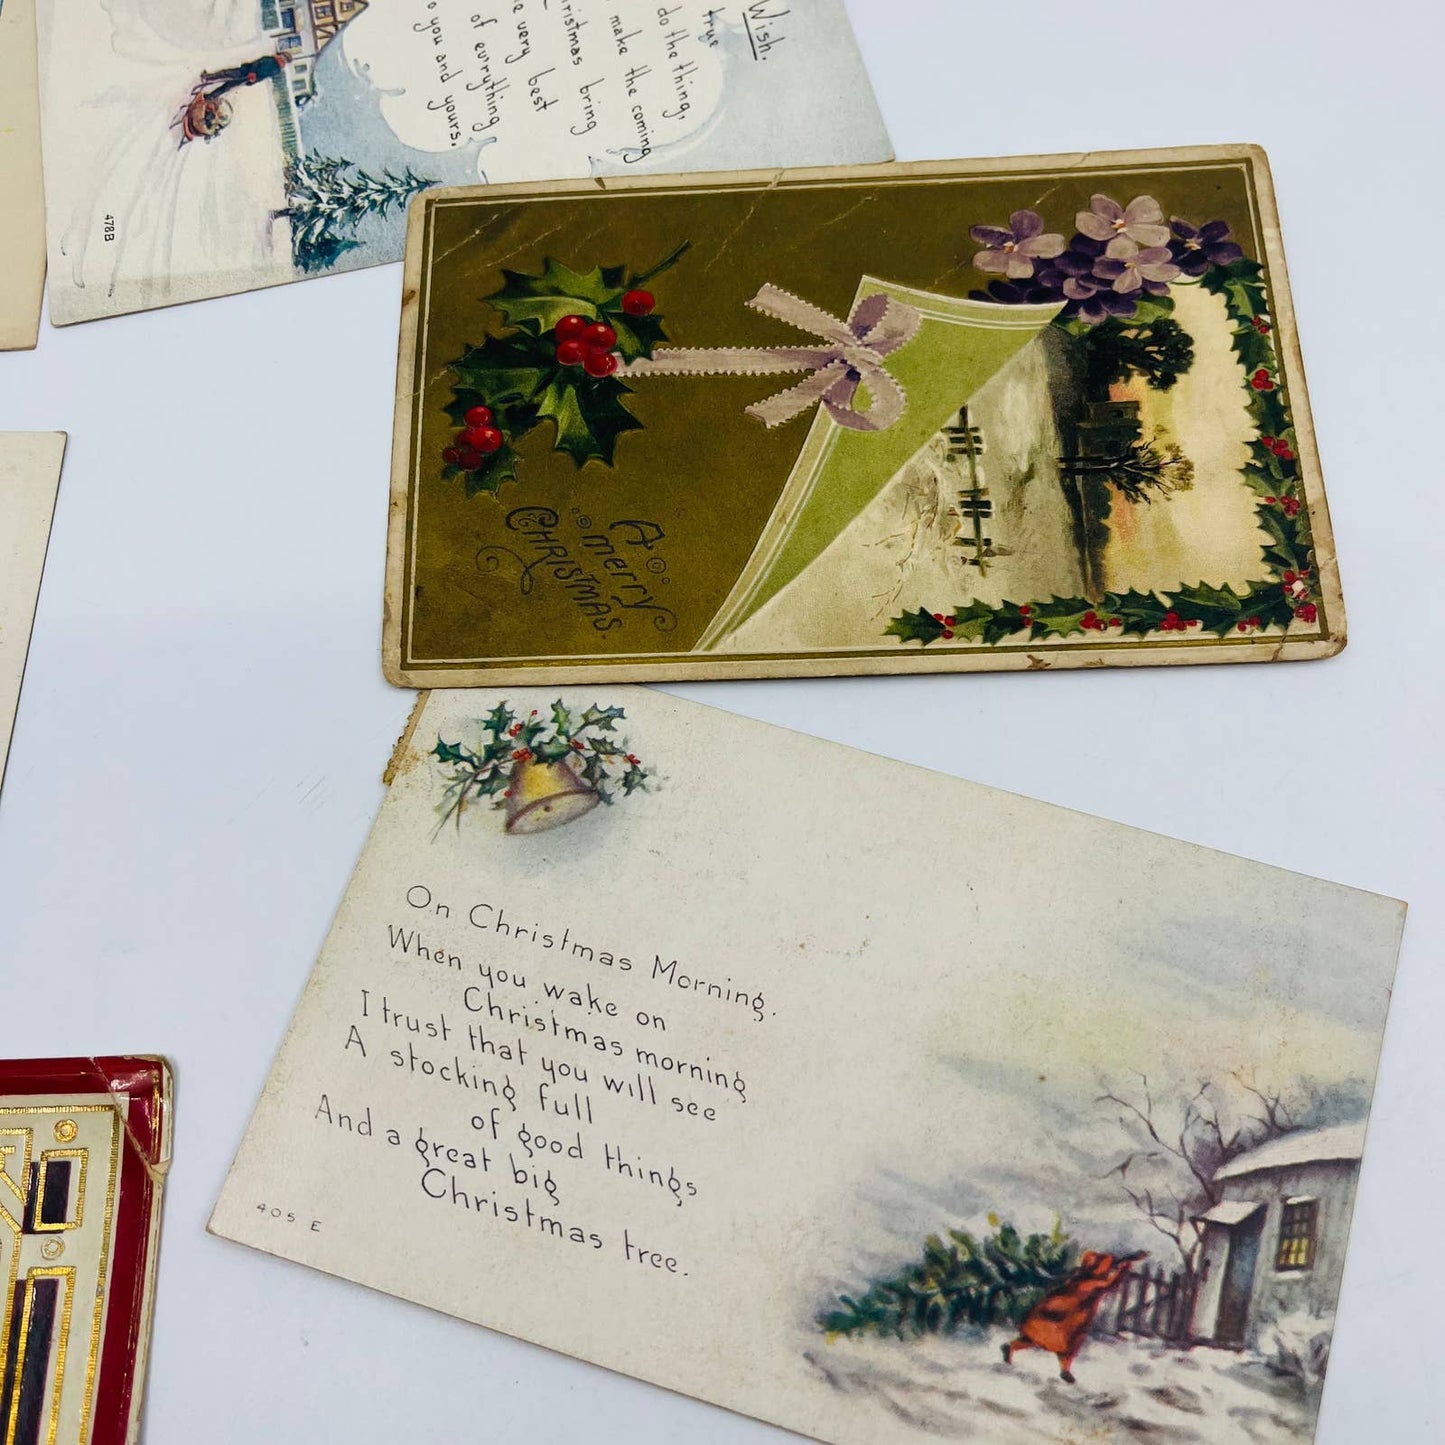 Wish.
true
do the thing,
make the coming
ristmas bring
e very best
of ev'rything
o you and yours.
478B
A
merry
CHRISTMAS.
On Christmas Morning.
When you wake on
Christmas morning
I trust that you will see
A stocking full
of good things
And a great big
Christmas tree.
405 E